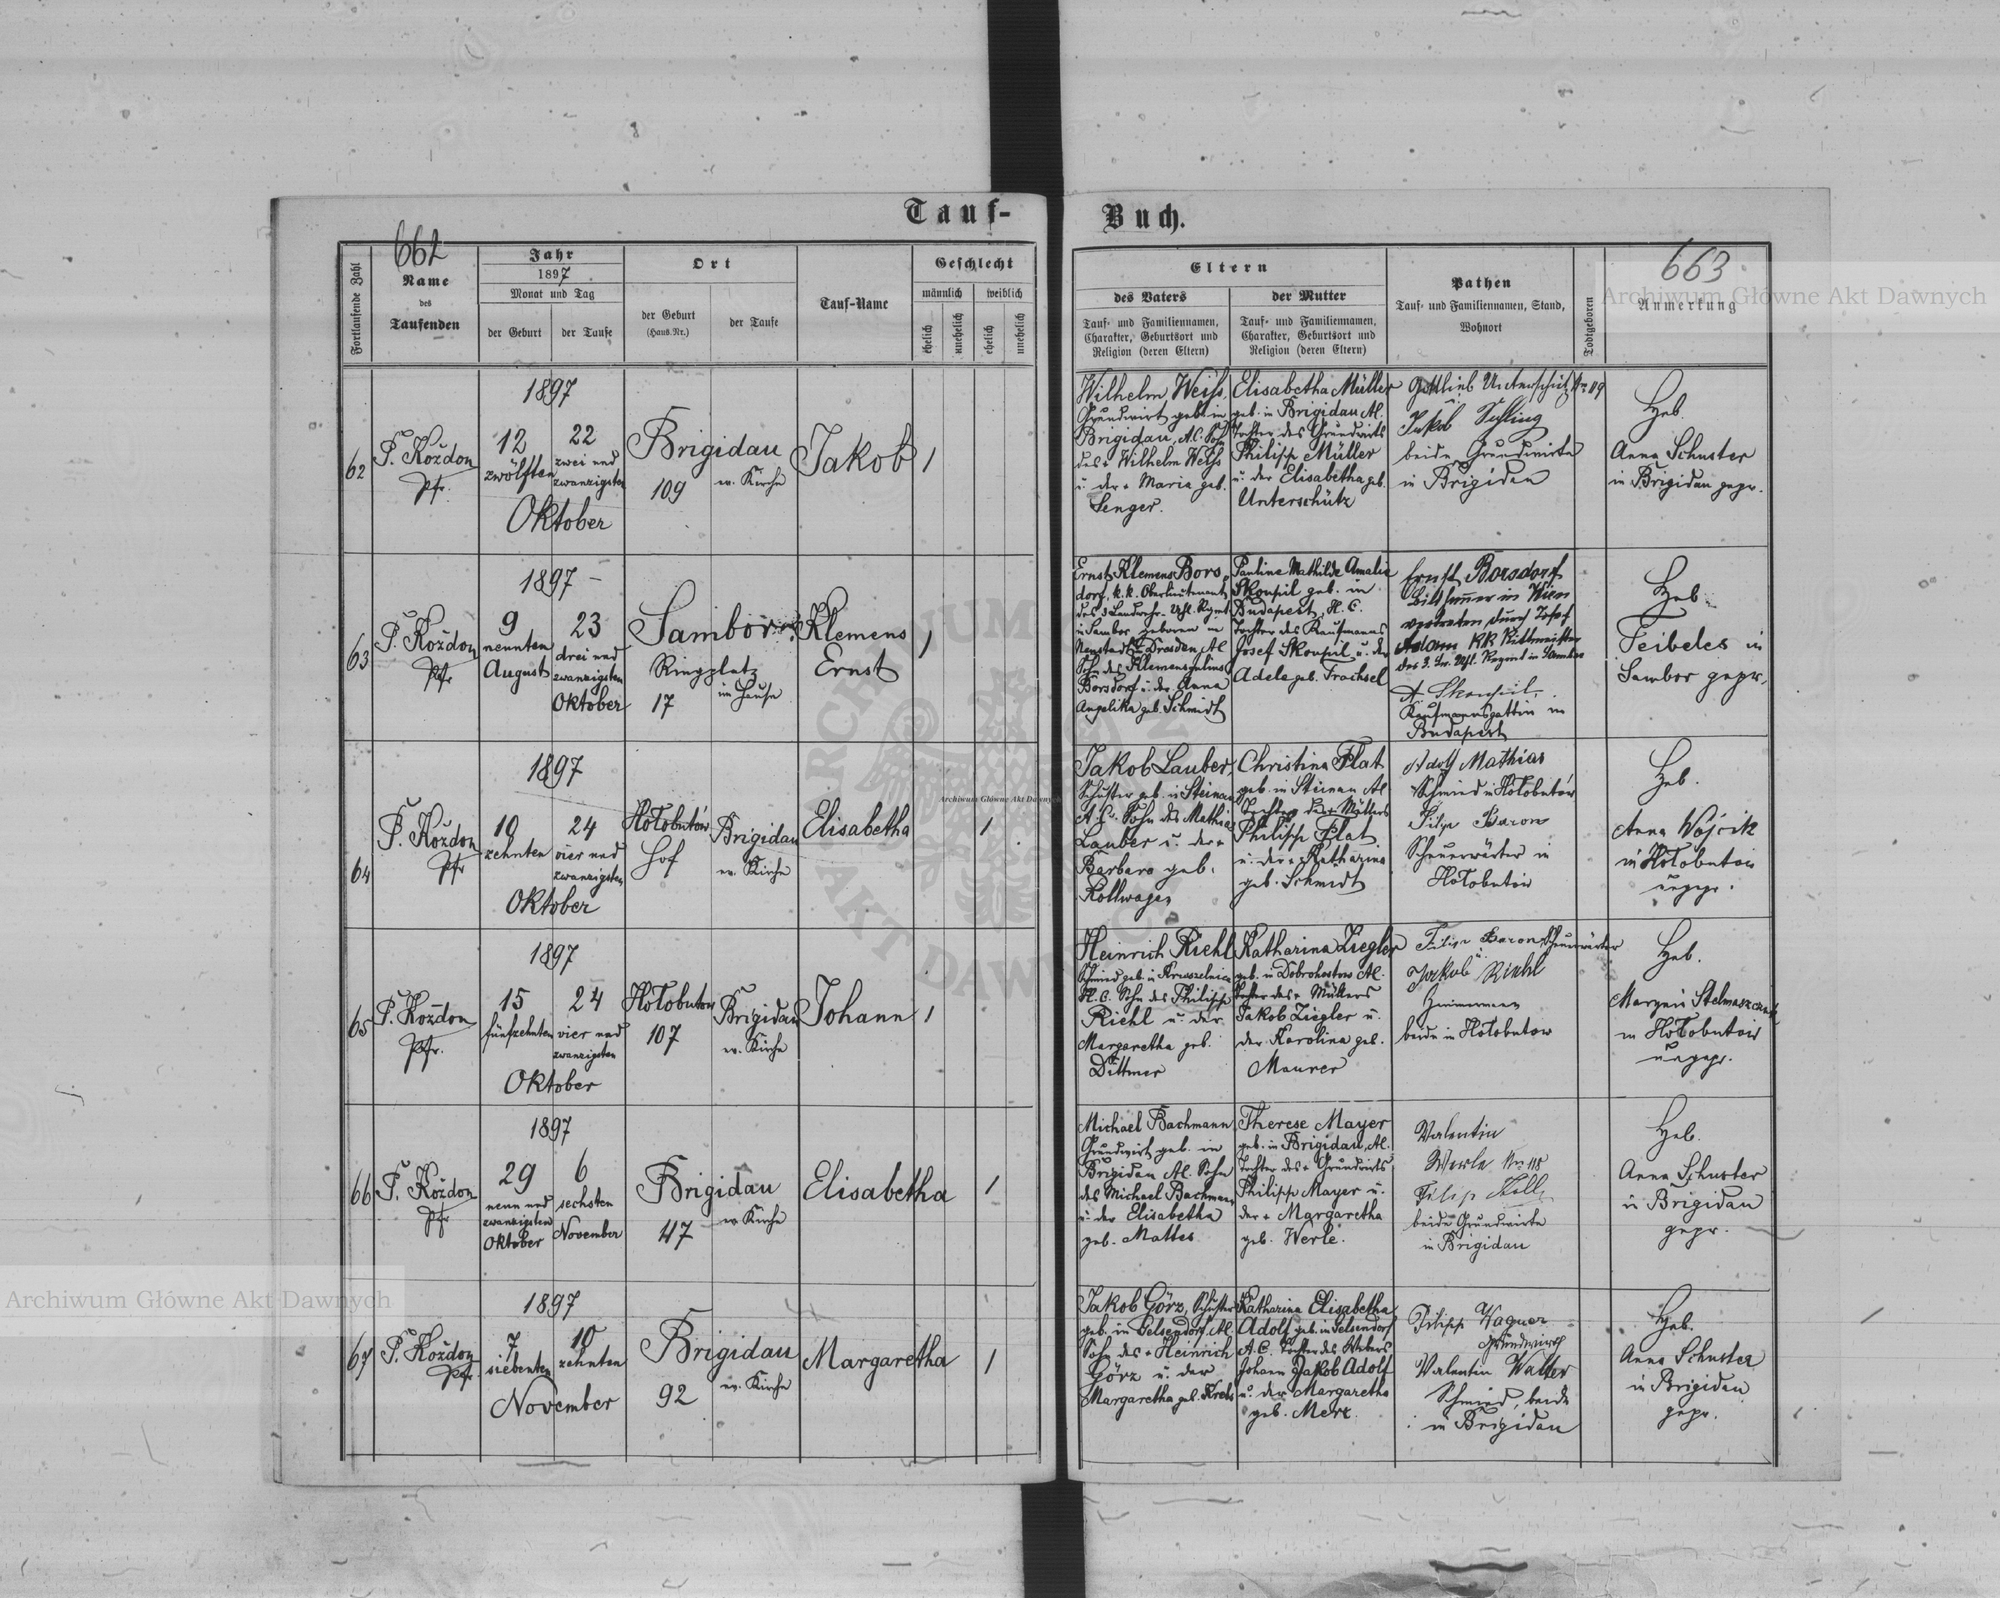 Tauf-
Buch.
662
663
Fortlaufende Zahl
Name
des
Taufenden
Jahr
1897
Monat und Tag
der Geburt
der Taufe
Ort
der Geburt
(Haus.Nr.)
der Taufe
Tauf-Name
Geschlecht
männlich
weiblich
ehelich
unehelich
ehelich
unehelich
Eltern
des Vaters
Tauf- und Familiennamen,
Charakter, Geburtsort und
Religion (deren Eltern)
der Mutter
Tauf- und Familiennamen,
Charakter, Geburtsort und
Religion (deren Eltern)
Pathen
Tauf- und Familiennamen, Stand,
Wohnort
Todtgeboren
Anmerkung
62
P. Koždon
Pfr.
1897
12
zwölften
22
zwei und
zwanzigsten
Oktober
Brigidau
109
ev. Kirche
Jakob
1
Wilhelm Weiß,
Grundwirt geb. in
Brigidau, A.C. Sohn
des + Wilhelm Weiß
u. der + Maria geb.
Senger.
Elisabetha Müller
geb. in Brigidau Al.
Tochter des Grundwirts
Philipp Müller
u. der Elisabetha geb.
Unterschütz
Gottlieb Unterschütz Nr. 119
u.
Jakob
beide Grundwirte
in Brigidau
Heb.
Anna Schuster
in Brigidau gepr.
63
P. Koždon
Pfr
1897
9
neunten
August
23
drei und
zwanzigsten
Oktober
Sambor
Ringplatz
17
im Hause
Klemens
Ernst
1
Ernst Klemens Bors
dorf, k.k. Oberlieutenant
des 3 Landwehr-Uhl. Rgmt
in Sambor geboren in
Neustadt Dresden Al
Sohn des Klemens Julius
Borsdorf u. der Anna
Angelika geb. Schmidt
Pauline Mathilde Amalie
Skoupil geb. in
Budapest, H.C.
Tochter des Kaufmanns
Josef Skoupil u. der
Adele geb. Trachsel
Ernst Borsdorf
in Wien
vertreten durch Josef
Adam KK Rittmeister
des 3. Lw. Uhl. Regmt in Sambor
A. Skoupil
Kaufmannsgattin in
Budapest
Heb.
Teibeles in
Sambor gepr.
64
P. Koždon
Pfr
1897
10
zehnten
24
vier und
zwanzigsten
Oktober
Hołobutów
Hof
Brigidau
ev. Kirche
Elisabetha
1
Jakob Lauber,
Schuster geb. in Steinau
A.C. Sohn des Mathias
Lauber u. der +
Barbara geb.
Kollwager
Christina Flat
geb. in Steinau Al
Tochter des + Müllers
Philipp Flat
u. der + Katharina
geb. Schmidt
Adolf Mathias
Schmied in Hołobutów
Filip Baron
Scheuerwärter in
Hołobutów
Heb.
Anna Wojcik
in Hołobutów
ungepr.
65
P. Kożdon
Pfr.
1897
15
fünfzehnten
24
vier und
zwanzigsten
Oktober
Hołobutow
107
Brigidau
ev. Kirche
Johann
1
Heinrich Riehl
Schmied geb. in Kruszelnica
H.C. Sohn des Philipp
Riehl u. der
Margaretha geb.
Dittmer
Katharina Ziegler
geb. in Dobrohostow Al.
Tochter des + Müllers
Jakob Ziegler u.
der Karolina geb.
Maurer
Filip Baron, Scheuerwärter
u.
Jakob Riehl
Zimmermann
beide in Hołobutow
Heb.
Maryni Stelmaszczuk
in Hołobutow
ungepr.
66
P. Kożdon
Pfr
1897
29
neun und
zwanzigsten
Oktober
6
sechsten
November
Brigidau
47
ev. Kirche
Elisabetha
1
Michael Bachmann
Grundwirt geb. in
Brigidau Al. Sohn
des Michael Bachmann
u. der Elisabetha
geb. Mattes
Therese Mayer
geb. in Brigidau, Al.
Tochter des + Grundwirts
Philipp Mayer u.
der + Margaretha
geb. Werle.
Valentin
Werle Nr. 118
Filip
beide Grundwirte
in Brigidau
Heb.
Anna Schuster
in Brigidau
gepr.
67
P. Kożdon
Pfr.
1897
7
siebenten
10
zehnten
November
Brigidau
92
ev. Kirche
Margaretha
1
Jakob Görz, Schuster
geb. in Gelsendorf, Al.
Sohn des + Heinrich
Görz u. der
Margaretha geb. Krebs
Katharina Elisabetha
Adolf geb. in Gelsendorf
A.C. Tochter des Webers
Johann Jakob Adolf
u. der Margaretha
geb. Merk
Filipp Wagner
Grundwirth
Valentin Walter
Schmied, beide
in Brigidau
Heb.
Anna Schuster
in Brigidau
gepr.
Archiwum Główne Akt Dawnych
Archiwum Główne Akt Dawnych
Archiwum Główne Akt Dawnych